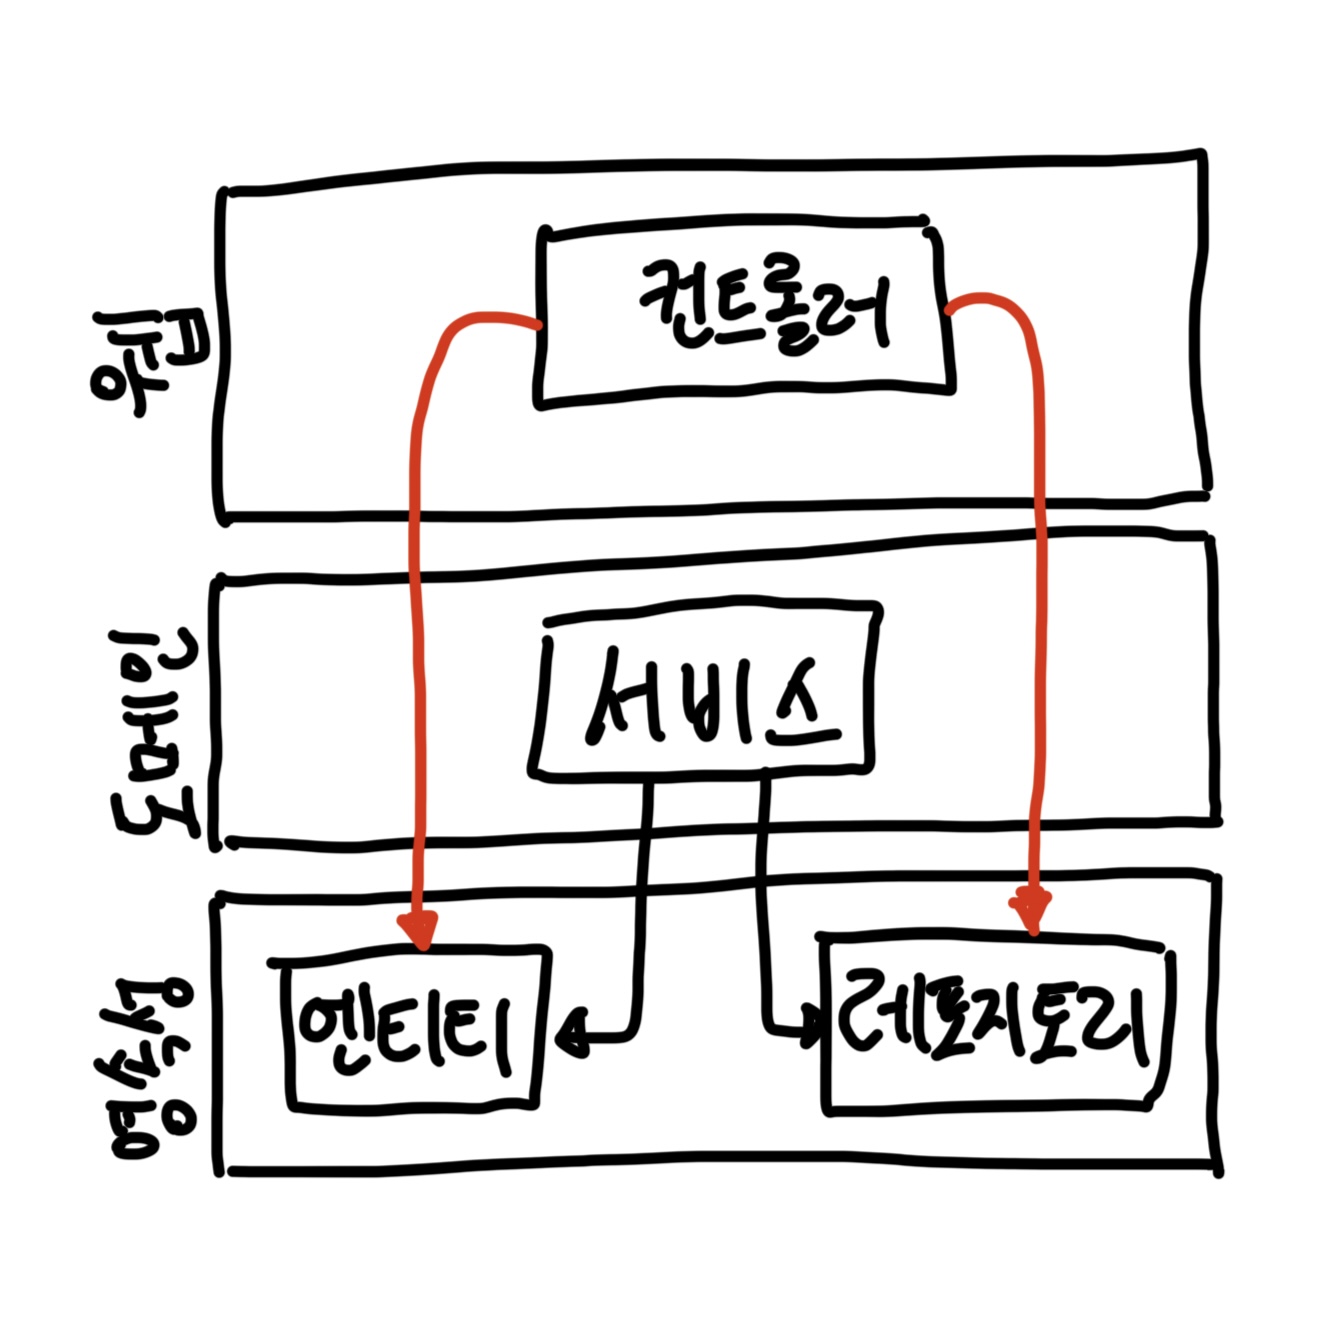 웹
컨트롤러
도메인
서비스
영속성
엔티티
레포지토리